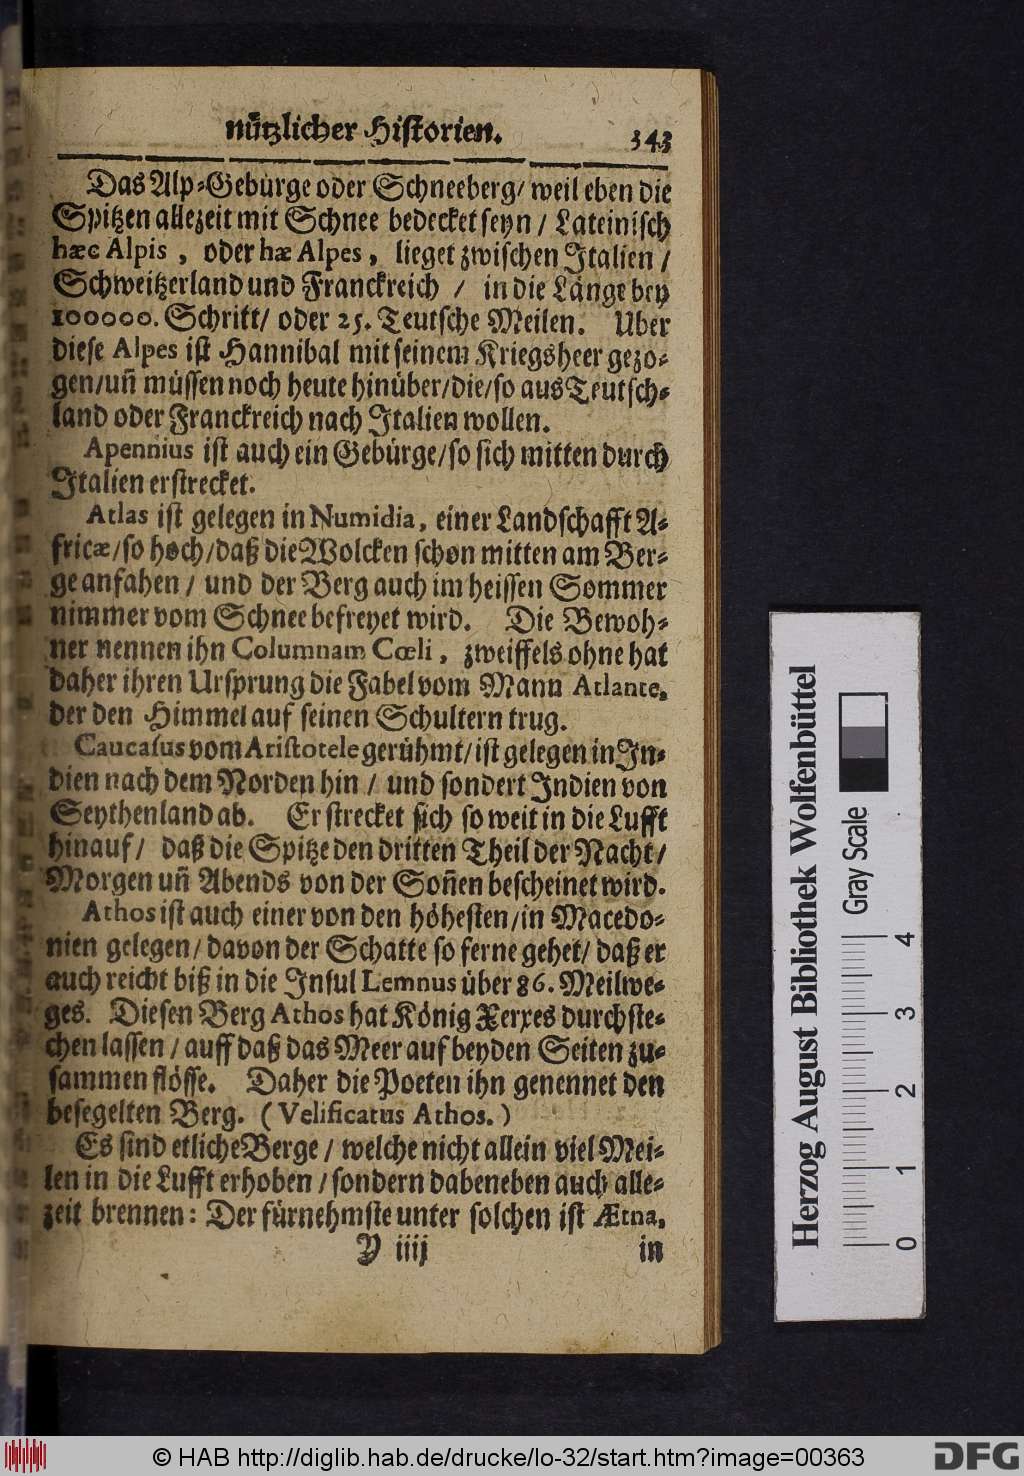 nützlicher Historien. 343
Das Alp-Gebürge oder Schneeberg/ weil eben die
Spitzen allezeit mit Schnee bedecket seyn / Lateinisch
hæc Alpis , oder hæ Alpes, lieget zwischen Italien /
Schweitzerland und Franckreich / in die Länge bey
100000. Schritt/ oder 25. Teutsche Meilen. Uber
diese Alpes ist Hannibal mit seinem Kriegsheer gezo-
gen/uñ müssen noch heute hinüber/die/so aus Teutsch-
land oder Franckreich nach Italien wollen.
Apennius ist auch ein Gebürge/so sich mitten durch
Italien erstrecket.
Atlas ist gelegen in Numidia, einer Landschafft A-
fricæ/so hoch/daß die Wolcken schon mitten am Ber-
ge anfahen / und der Berg auch im heissen Sommer
nimmer vom Schnee befreyet wird. Die Bewoh-
ner nennen ihn Columnam Cœli, zweiffels ohne hat
daher ihren Ursprung die Fabel vom Mann Atlante,
der den Himmel auf seinen Schultern trug.
Caucasus vom Aristotele gerühmt/ist gelegen in In-
dien nach dem Norden hin / und sondert Indien von
Seythenland ab. Er strecket sich so weit in die Lufft
hinauf/ daß die Spitze den dritten Theil der Nacht/
Morgen uñ Abends von der Soñen bescheinet wird.
Athos ist auch einer von den höhesten/in Macedo-
nien gelegen/ davon der Schatte so ferne gehet/ daß er
auch reicht biß in die Insul Lemnus über 86. Meilwe-
ges. Diesen Berg Athos hat König Xerxes durchste-
chen lassen / auff daß das Meer auf beyden Seiten zu-
sammen flösse. Daher die Poeten ihn genennet den
besegelten Berg. (Velificatus Athos.)
Es sind etliche Berge / welche nicht allein viel Mei-
len in die Lufft erhoben / sondern dabeneben auch alle-
zeit brennen: Der fürnehmste unter solchen ist Ætna,
Y iiij in
Herzog August Bibliothek Wolfenbüttel
Gray Scale
0 1 2 3 4
© HAB http://diglib.hab.de/drucke/lo-32/start.htm?image=00363
DFG